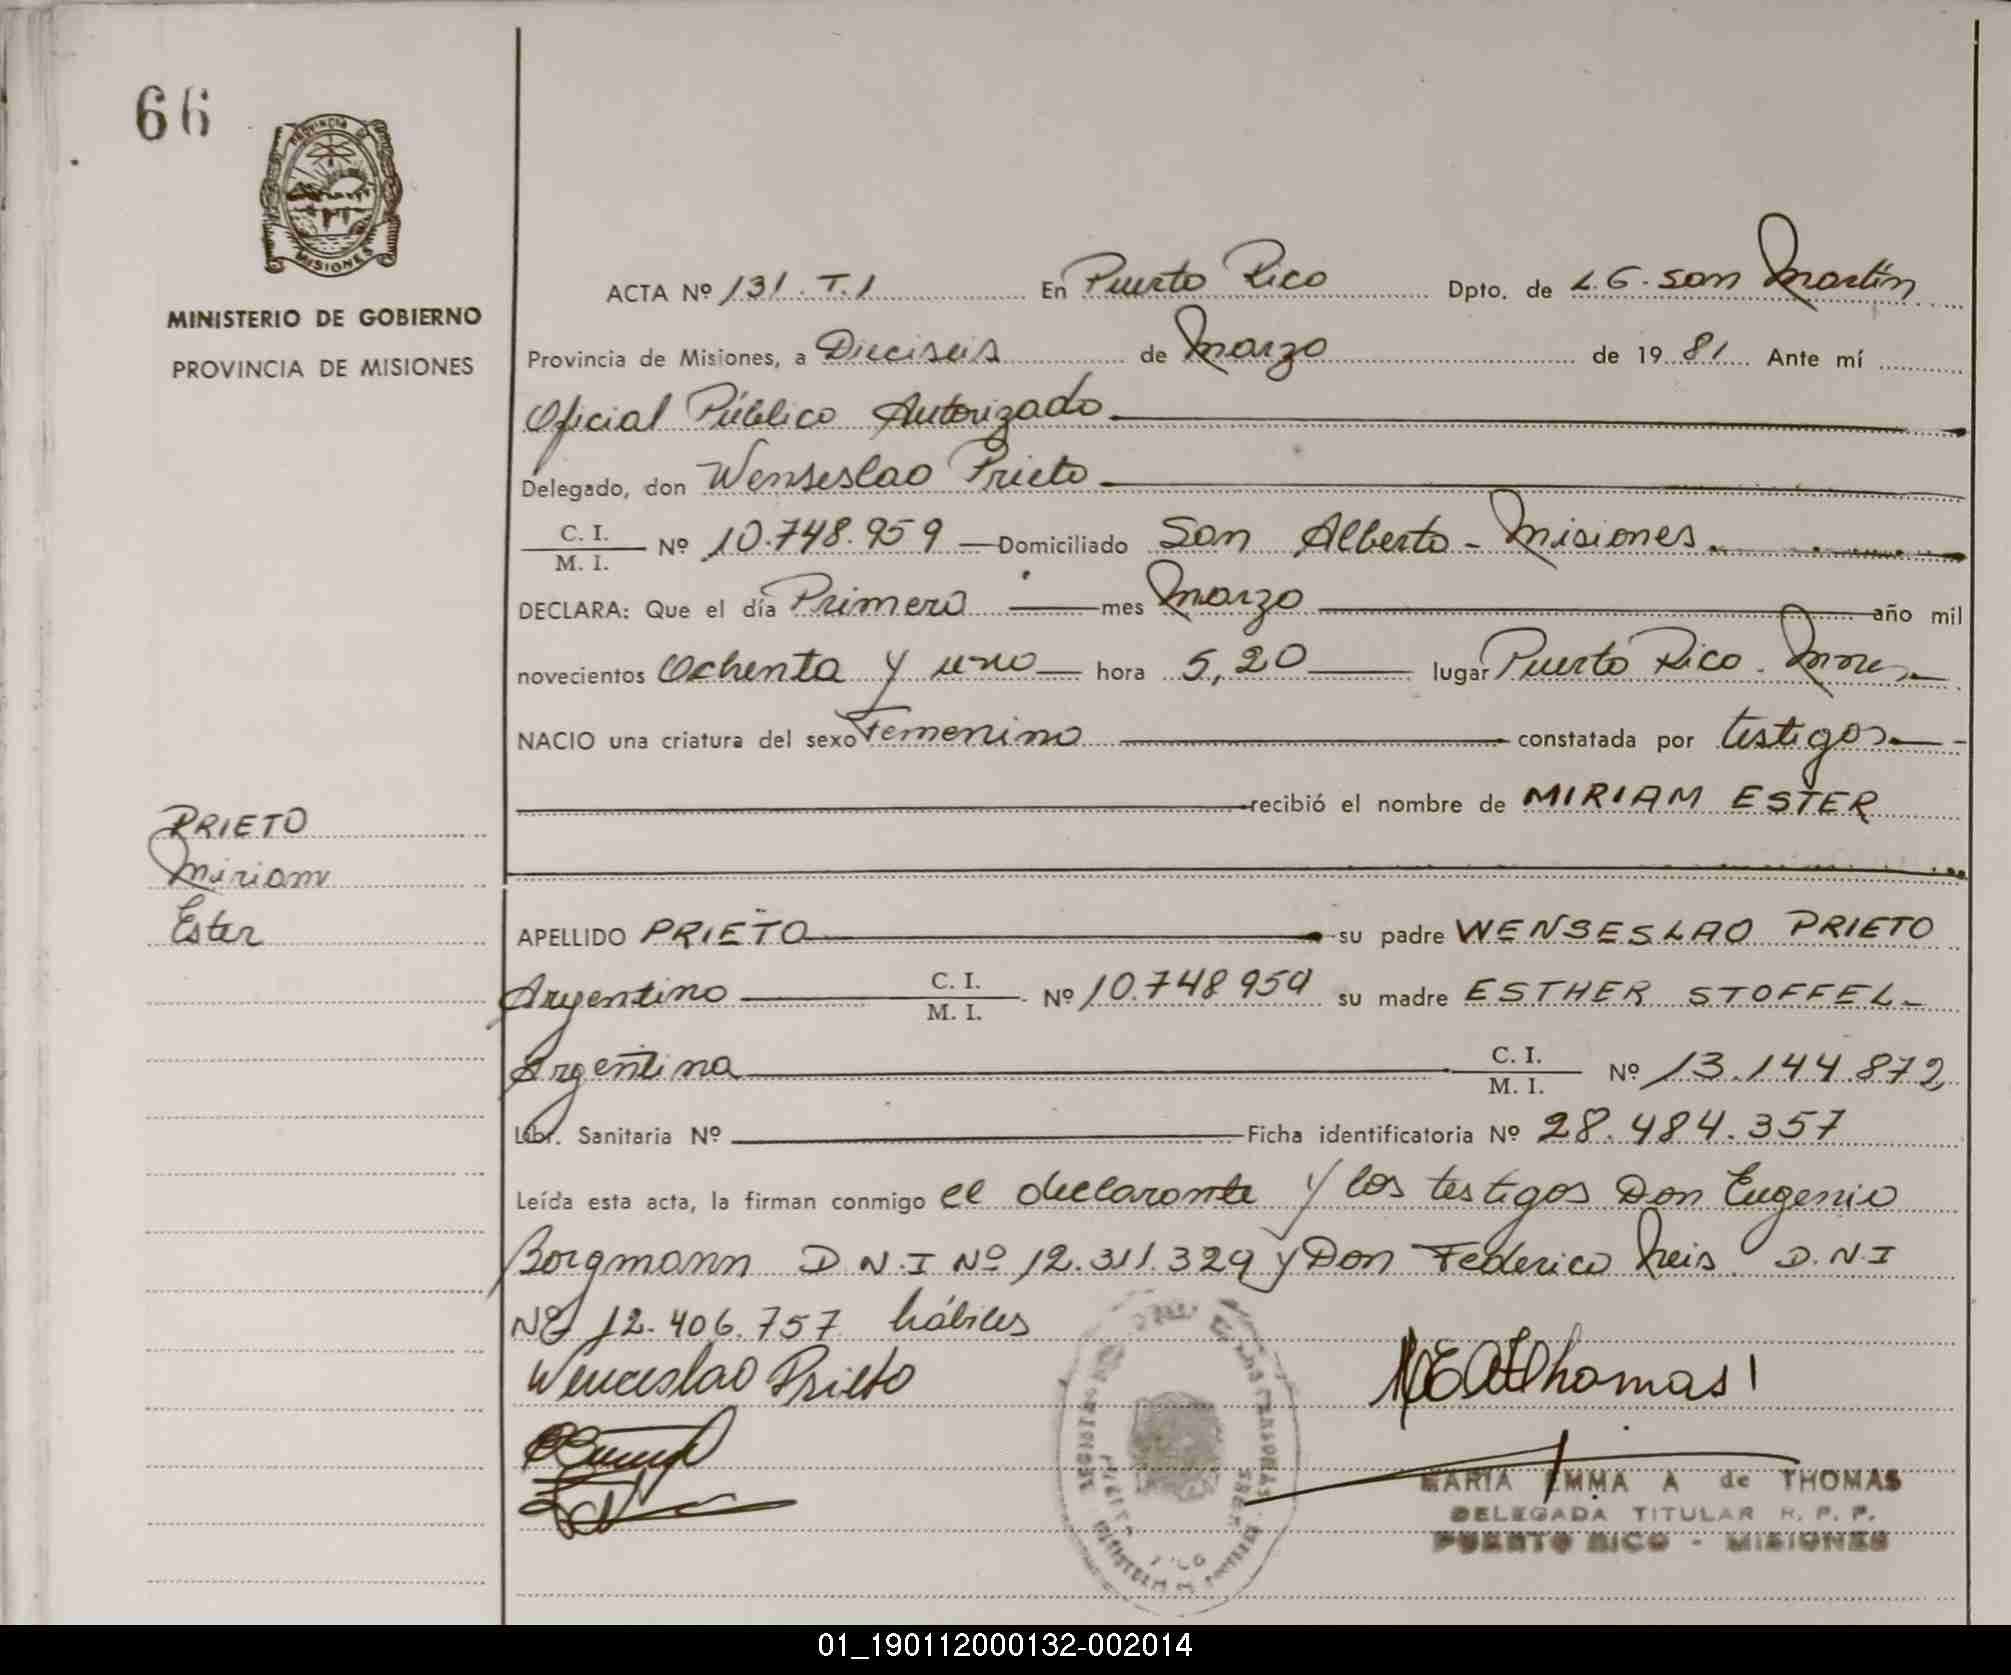 66
PROVINCIA DE
MISIONES
MINISTERIO DE GOBIERNO
PROVINCIA DE MISIONES
ACTA Nº 131. T.1 En Puerto Rico Dpto. de L.G. San Martín
Provincia de Misiones, a Dieciseis de Marzo de 19 81 Ante mí
Oficial Público Autorizado
Delegado, don Wenseslao Prieto
C. I.
M. I. Nº 10.748.959 Domiciliado San Alberto - Misiones.
DECLARA: Que el día Primero mes Marzo año mil
novecientos Ochenta y uno hora 5,20 lugar Puerto Rico. Mnes
NACIO una criatura del sexo Femenino constatada por testigos
recibió el nombre de MIRIAM ESTER
PRIETO
Miriam
Ester
APELLIDO PRIETO su padre WENSESLAO PRIETO
Argentino C. I.
M. I. Nº 10.748959 su madre ESTHER STOFFEL
Argentina C. I.
M. I. Nº 13.144.872
Libr. Sanitaria Nº Ficha identificatoria Nº 28.484.357
Leída esta acta, la firman conmigo el declarante y los testigos Don Eugenio
Borgmann D.N.I Nº 12.311.329 y Don Federico D.N.I
Nº 12.406.757 hábiles
Wenceslao Prieto
Thomas
MARIA EMMA A de THOMAS
DELEGADA TITULAR R. P. P.
PUERTO RICO - MISIONES
01_190112000132-002014